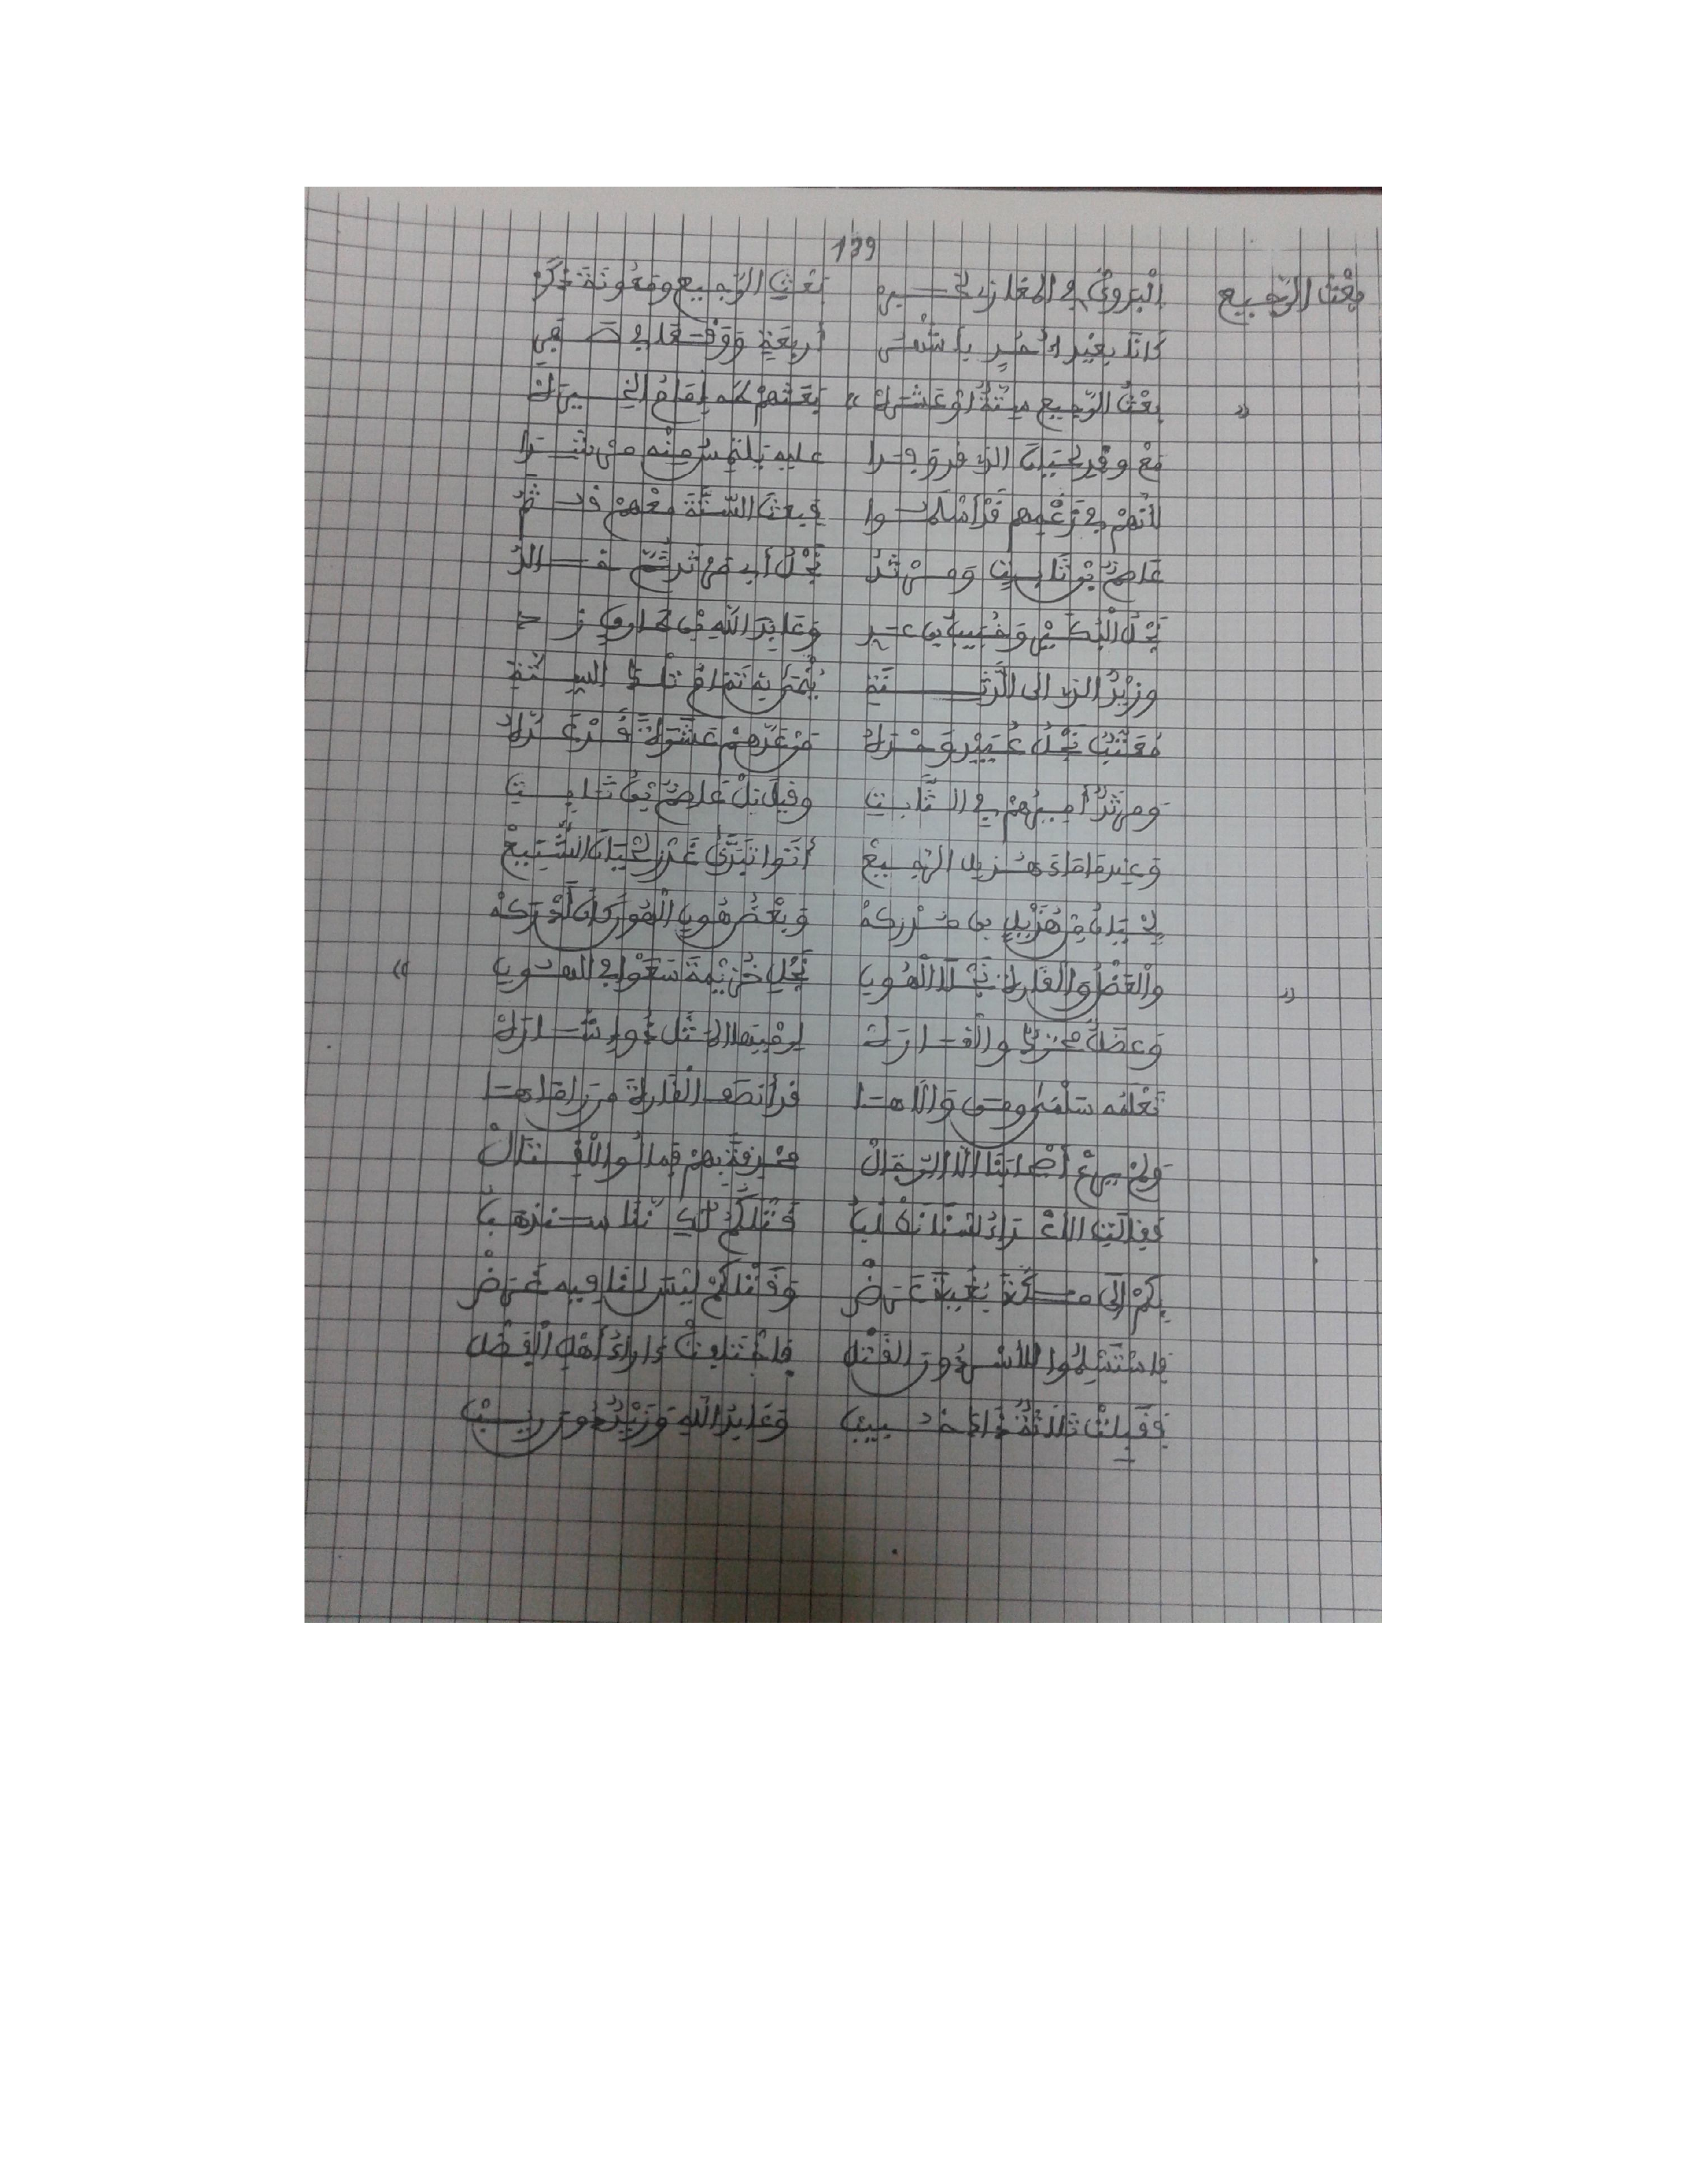 139
بعْثُ الرّجيع الْبَدويُّ في المغازي لخـــير بَعْثِ الرّجيع ومَعُونَةَ ذَكَرْ
كانا بغير أُحُدٍ بأَشْهُر أربعَةٍ ووَقْعَا في صَفَر
بعْثُ الرّجيع سِتّةٌ أوْ عَشَرهْ » بَعَثهمْ له إمَامُ الْخِيَرهْ
مَعْ وفدِ لِحْيَانَ الذي قد وفدا عليه يلتمِسُ مِنْه مُرْشِدا
لأنهمْ في زَعْمِهم قد أسْلَمُوا فبعثَ السّتّةَ معْهمْ
عَاصمٌ بْنُ ثَابِتٍ وَمَرْثَدُ نَجْلُ أبي مَرْثَدٍ خَالدُ
نَجْلُ الْبُكَيْرِ وَخُبَيْبُ بن عدي وَعَابدَ اللهِ بن طارق
وزيْدُ الذي إلى الدَّثِنَةِ يُنْمَى به تَمَامُ تلكَ السِّتّةِ
مُعَتِّبٌ نَجْلُ عُبَيْدٍ وَ مَنْ عَدّهمْ عَشَرةً قَدْ عَدّهُ
ومرْثَدٌ أميرُهمْ في الثَّابتِ وقيل بلْ عَاصمٌ بْنُ ثَابِتِ
وعندما ماءَ هذيل الرّجِيعْ أتوْا تَبَدَّى غَدْرُ لِحْيَانَ الشَّنِيعْ
لِحْيَانُ مِنْ هُذَيْلٍ بن مُدْرِكهْ وَبَعْضُ هُونِ الْهُونُ كانَ أَدْرَكهْ
» والْعَضْلُ والْقَارةُ نَجْلَا الْهُونِ نَجْلِ خُزَيْمةَ سَعَوْا في الهُونِ »
وَعَضَلٌ تُعْزَى والْقَارَهْ لرمْيِهَا إلى ذوو إشَارَهْ
تَعْلَمُه سَلْمَى ومَن وَالَاهَا قد أنصَفَ الْقَارةَ مَنْ رَامَاهَا
ولمْ يَرُعْ أصْحَابَنَا إلّا الرّجَالْ مُحْدِقةٌ بهمْ فمالُوا لِلْقِتَالْ
فقالتِ الأعْدَاءُ لسْنَا نَطْلُبُ قَتْلَكُمْ لكنّنَا سنذهَبُ
بكمْ إلى مكّةَ بُغْيةَ عَرَضْ وَقَتْلُكُمْ ليْسَ لنا فيه غَرَضْ
فاستَسْلِمُوا للأسْرِ دُونَ القَتْلِ فاخْتلفتْ آراءُ أهْلِ الْفَضْلِ
فقَبِلتْ ثَلَاثةٌ ذاكَ خُبيبْ وَعَابدُ اللهِ وَزَيْدٌ دُونَ رَيْبْ